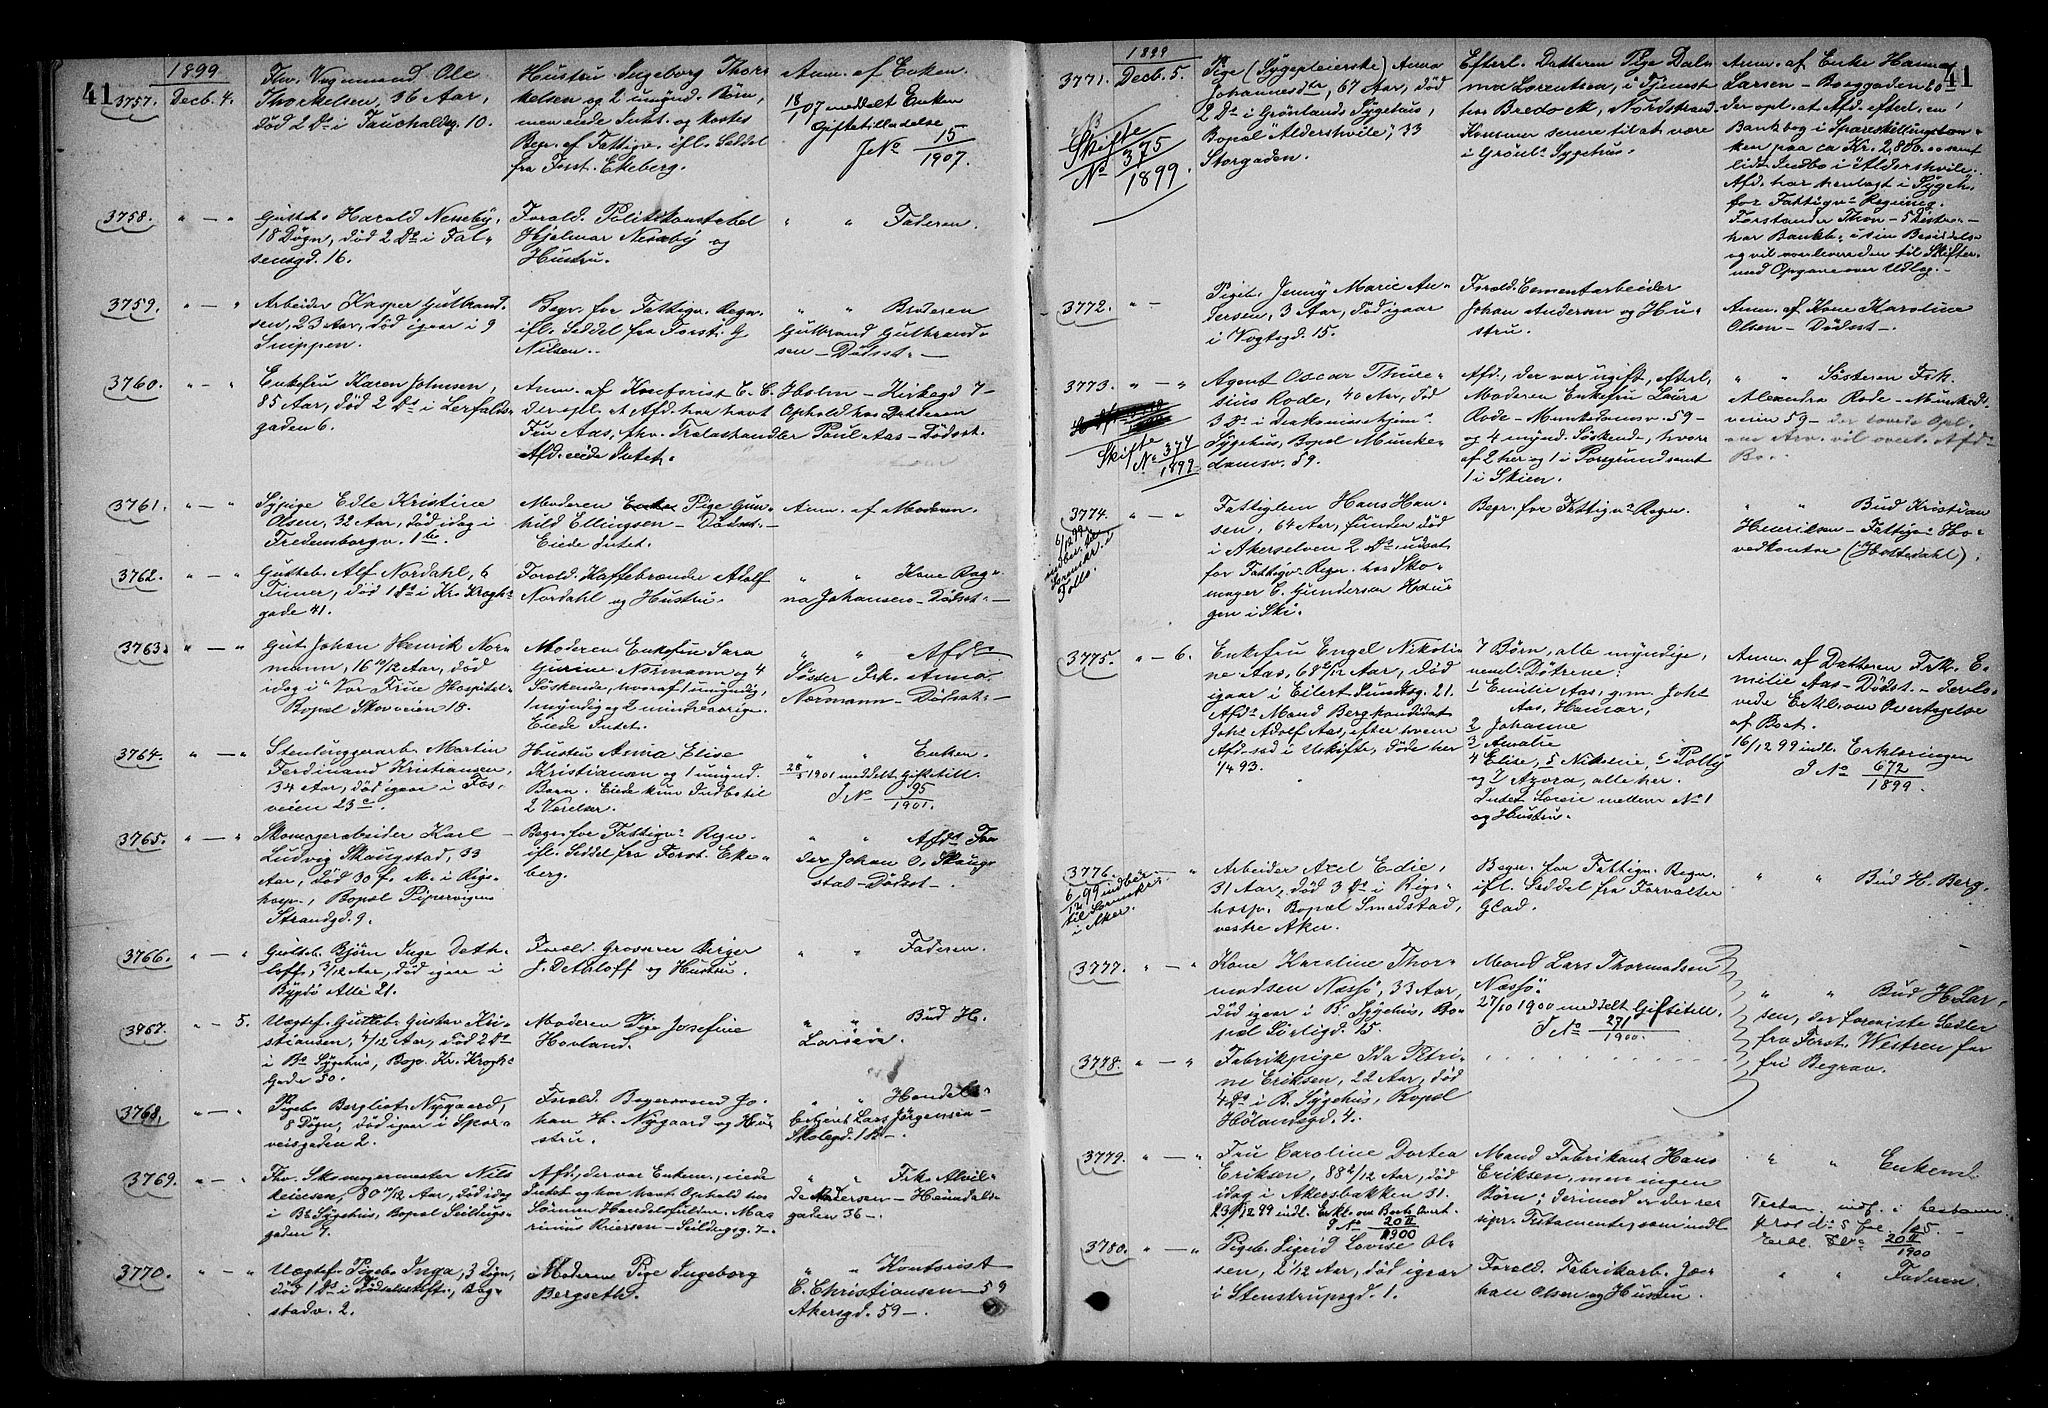 41
1899
3757. Decb. 4.
Fhv. Vognmand Ole
Thorkelsen, 36 Aar,
død 2 Ds i Fauchaldsg. 10.
Hustru Ingeborg Thor-
kelsen og 2 umynd. Børn,
men eiede Intet og kostes
Begr. af Fattigv. ifl. Seddel
fra Forst. Ekeberg.
Anm. af Enken.
18/1 07 meddelt Enken
Giftetilladelse
J No 15/1907.
3758. " — "
Gutteb. Harald Nesseby,
18 Døgn, død 2 Ds i Fal-
sensgd. 16.
Forald. Politikonstabel
Hjalmar Nesseby og
Hustru.
" " Faderen.
3759. " — "
Arbeider Kasper Gulbrand-
sen, 23 Aar, død igaar i 9
Snippen.
Begr. for Fattigv. Regn.
ifl. Seddel fra Forst. G
Nilsen.
" " Broderen
Gulbrand Gulbrand-
sen — Dødsst. —
3760. " — "
Enkefru Karen Johnsen,
85 Aar, død 2 Ds i Lerfalds-
gaden 6.
Anm. af Kontorist C. C. Holm — Kirkegd 7 —
der opl. at Afd. har havt Ophold hos Datteren
Fru Aas, fhv. Trælasthandler Paul Aas — Dødsst.
Afd. eiede Intet.
3761. " — "
Sypige Edle Kristine
Olsen, 32 Aar, død idag i
Fredensborgv. 1 b.
Moderen Pige Gun-
hild Ellingsen — Dødsst. —
Eiede Intet.
Anm. af Moderen.
3762. " — "
Gutteb. Alf Nordahl, 6
Timer, død 1 Ds i Kr. Krogh's
gade 41.
Forald. Kaffebrænder Adolf
Nordahl og Hustru.
" " Kone Rag-
na Johansen — Dødsst. —
3763. " — "
Gut Johan Henrik Nor-
mann, 16 10/12 Aar, død
idag i "Vor Frue Hospital"
Bopæl Skovveien 18.
Moderen Enkefru Sara
Gurine Normann og 4
Søskende, hvoraf 1 umyndig,
1 myndig og 2 mindreaarige.
Eiede Intet.
" " Afdes
Søster Frk. Anna
Normann — Dødsst. —
3764. " — "
Stenhuggerarb. Martin
Ferdinand Kristiansen,
34 Aar, død igaar i Fos-
veien 23 c.
Hustru Anna Elise
Kristiansen og 1 umynd.
Barn. Eiede kun Indbo til
2 Værelser.
" " Enken.
28/5 1901 meddelt Giftetill.
J No 95/1901.
3765. " — "
Skomagerarbeider Karl
Ludvig Skaugstad, 33
Aar, død 30 f. M. i Rigs-
hosp., Bopæl Pipervigens
Strandgd. 9.
Begr. for Fattigv. Regn.
ifl. Seddel fra Forst. Eke-
berg.
" " Afds Fa
der Johan O. Skaug-
stad — Dødsst —.
3766. " — "
Gutteb. Bjørn Inge Deth-
loff, 3/12 Aar, død igaar i
Bygdø Allé 21.
Forald. Grosserer Birger
J. Dethloff og Hustru.
" " Faderen.
3767. " — 5.
Uægtef. Gutteb. Gustav Kri-
stiansen, 4/12 Aar, død 2 Ds
i Bs Sygehus, Bop. Kr. Krogh's
Gade 50.
Moderen Pige Josefine
Hovland.
" " Bud H.
Larsen.
3768. " — "
Pigeb. Bergliot Nygaard,
8 Døgn, død igaar i Spor-
veisgaden 2.
Forald. Bogersvend Jo-
han H. Nygaard og Hu-
stru.
" " Handels-
betjent Lars Jørgensen —
Skolegd. 18 —.
3769. " — "
Fhv. Skomagermester Nils
Reiersen, 80 10/12 Aar, død idag
i Bs Sygehus, Bopæl Seildugs-
gaden 7.
Afd., der var Enkem., eiede
Intet og har havt Ophold hos
Sønnen Handelsfuldm. Ma-
rinius Reiersen — Seildugsg. 7 —
" " Frk. Alvil-
de Andersen — Heimdals-
gaden 36 —.
3770. " — "
Uægtef. Pigeb. Inga, 3 Døgn,
død 1 Ds i Fødselsstift., Bog-
stadv. 2.
Moderen Pige Ingeborg
Bergseth.
" " Kontorist
C. Christiansen — 59
Akersgd. 59 —.
41
1899
3771. Decb. 5.
Skifte
No 375/1899.
Pige (Sygepleierske) Anna
Johannesdtr, 67 Aar, død
2 Ds i Grønlands Sygehus,
Bopæl "Aldershvile", 33
Storgaden.
Efterl. Datteren Pige Dal-
ma Lorentzen, i Tjeneste
hos Bredock, Nordstrand.
Kommer senere til at være
i Grønl. Sygehus.
Anm. af Enke Hanna
Larsen — Borggaden 20 —
der opl. at Afd. efterl. en
Bankbog i Spareskillingsban-
ken paa ca Kr. 2,800.00 samt
lidt Indbo i "Aldershvile".
Afd. har henlagt i Sygeh.
for Fattigv. Regning.
Forstander Thon — 5 Distr. —
har Bankb. i sin Besiddelse
og vil overlevere den til Skifter.
med Opgave over Udlæg.
3772. " —
Pigeb. Jenny Marie An-
dersen, 3 Aar, død igaar
i Vogtsgd. 15.
Forald. Cementarbeider
Johan Andersen og Hu-
stru.
Anm. af Kone Karoline
Olsen — Dødsst —.
3773. " — "
Skifte
No 374/1899
Agent Oscar Thure-
sius Rode, 40 Aar, død
3 Ds i Diakonissehjem.
Sygehus, Bopæl Munke-
damsv. 59.
Afd., der var ugift, efterl.
Moderen Enkefru Laura
Rode — Munkedamsv. 59 —
og 4 mynd. Søskende, hvor-
af 2 her og 1 i Porsgrund samt
1 i Skien.
" " Søsteren Frk.
Alexandra Rode — Munkeds-
veien 59 — der lovede Opl.
om Arv. vil overt. Afds
Bo.
3774. " — "
6/12 99
indber. til
Sorenskr. i
Follo.
Fattiglem Hans Han-
sen, 64 Aar, funden død
i Akerselven 2 Ds, udsat
for Fattigv. Regn. hos Sko-
mager C. Gundersen Hau-
gen i Ski.
Begr. for Fattigvs Regn.
" " Bud Kristian
Henriksen — Fattigv. Ho-
vedkontor (Holtedahl).
3775. " — 6.
Enkefru Engel Nikoli-
ne Aas, 68 2/12 Aar, død
igaar i Eilert Sundtsg. 21.
Afds Mand Bergkandidat
Johs Adolf Aas, efter hvem
Afd. sad i Uskifte, døde her
1/4 93.
7 Børn, alle myndige,
neml. Døtrene:
1 Emilie Aas, g. m. Johs
Aas, Hamar,
2 Johanne
3 Amalie
4 Elise, 5 Nikoline, 6 Polly
og 7 Azora, alle her.
Intet Særeie mellem No 1
og Hustru.
Anm. af Datteren Frk. E-
milie Aas — Dødsst. — der lo-
vede Erkl. om Overtagelse
af Boet.
16/12 99 indl. Erklæringen
J No 672/1899.
3776. " — "
6/12 99 indber.
til Sorenskr.
i Aker.
Arbeider Axel Edie,
31 Aar, død 3 Ds i Rigs-
hosp. Bopæl Smedstad,
vestre Aker.
Begr. for Fattigv. Regn.
ifl. Seddel fra Forvalter
Glad.
" " Bud H. Berg.
3777. " — "
Kone Karoline Thor-
modsen Næssjø, 33 Aar,
død igaar i B. Sygehus, Bo-
pæl Sørligd. 15.
Mand Lars Thormodsen
Næssjø.
27/10 1900 meddelt Giftetill.
J No 271/1900.
" " Bud H. Lar-
sen, der foreviste Sedler
fra Forst. Westren for
fri Begrav.
3778. " — "
Fabrikpige Ida Petri-
ne Eriksen, 22 Aar, død
4 Ds i B. Sygehus, Bopæl
Hølandsgd. 4.
3779. " — "
Fru Caroline Dortea
Eriksen, 88 2/12 Aar, død
idag i Akersbakken 31.
23/12 99 indl. Erkl. om Boets Overt.
J No 20 II/1900
Mand Fabrikant Hans
Eriksen, men ingen
Børn; derimod er der re-
sipr. Testamente, som indl.
" " Enkemd.
Testam. indf. i testamen
prot. ds 5 fol. 105. —
Erkl. 20 II/1900
3780. " — "
Pigeb. Sigrid Lovise Ol-
sen, 2/12 Aar, død igaar
i Stenstrupsgd. 1.
Forald. Fabrikarb. Jo-
han Olsen og Hustru.
" " Faderen.